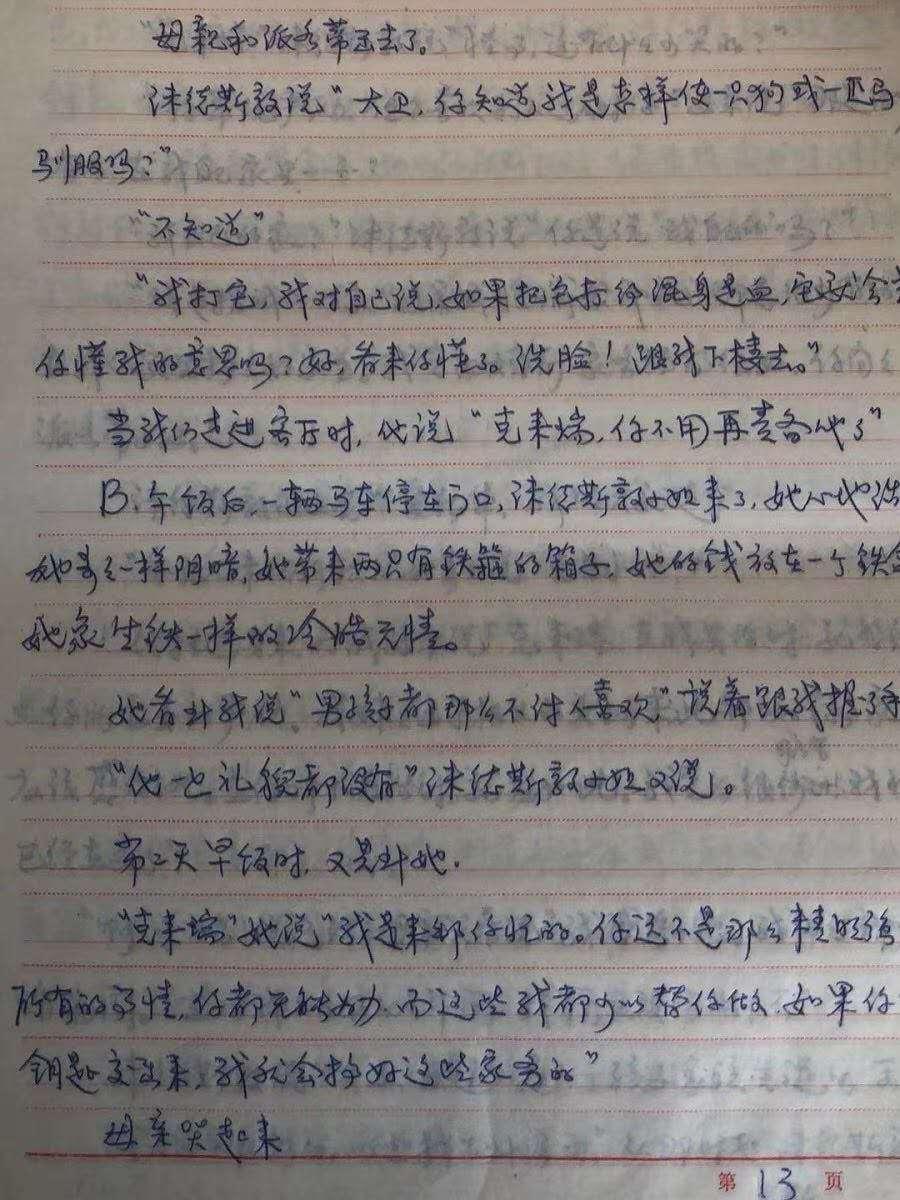 母亲和派各蒂出去了。
谋德斯敦说“大卫,你知道我是怎样使一只狗或一匹马
驯服吗?”
“不知道”
“我打它,我对自己说,如果把它打得混身是血,它就会
你懂我的意思吗?好,看来你懂了。洗脸!跟我下楼去。”
当我们走进客厅时,他说“克来端,你不用再责备他了”
B:午饭后,一辆马车停在门口,谋德斯敦小姐来了,她心地
她哥哥一样阴暗,她带来两只有铁箍的箱子,她的钱放在一个铁
她象生铁一样的冷酷无情。
她看到我说“男孩子都那么不讨人喜欢”说着跟我握了手
“他一也礼貌都没有”谋德斯敦小姐又说。
第二天早饭时,又是她。
“克来端”她说“我是来帮你忙的。你还不是那么精明强
所有的事情,你都无能为力,而这些我都可以替你做,如果你
钥匙交出来,我就会护好这些家务的”
母亲哭起来
第 13 页